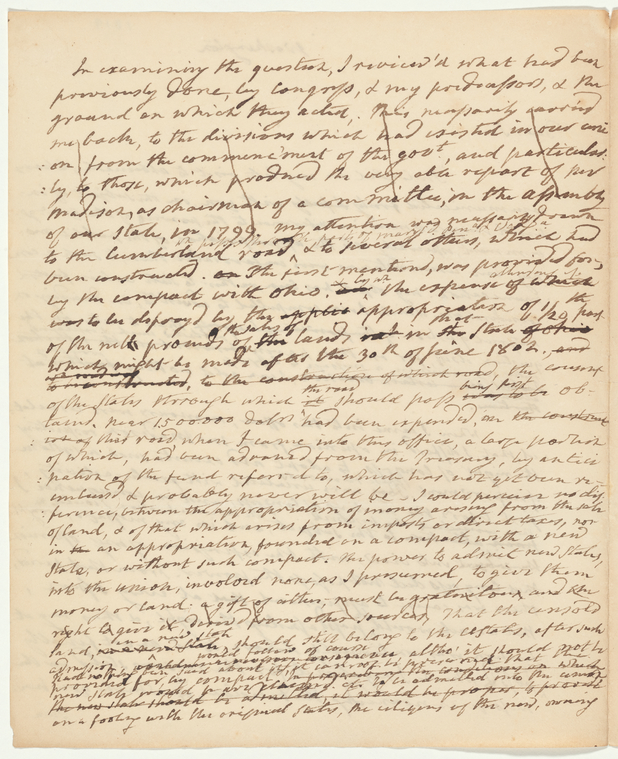 In examining the question, I review'd what had been
previously done, by Congress, & my predecessors, & the
ground on which they acted. This, necessarily carried
me back, to the divisions which had existed in our uni-
on, from the commenc'ment of the govt, and particular-
ly, to those, which produced the very able report of
Madison, as chairman of a committee, in the assembly
of our State, in 1799. my attention was necessarily drawn
to the Cumberland road, & to several others, which had
been constructed. The first mentioned, was provided for,
by the compact with Ohio. the expense of which
was to be defrayed by the applied appropriation of the
of the nett proceeds of the sales of the lands in that the State of Ohio
which might be made after the 30th of June 1802. and
to the construction of which road, the consent
the road being first
of the States through which it should pass was to be ob-
tain'd. near 1500000 dolrs had been expended, on the construct
ion of this road, when I came into this office, a large portion
of which, had been advanced from the treasury, by antici-
pation of the fund referred to, which has not yet been re-
imbursed & probably never will be. I could perceive no dif-
ference, between the appropriation of money arising from the sale
of land, & of that which arises from imposts or direct taxes, nor
in an appropriation, founded on a compact, with a new
State, or without such compact. The power to admit new States,
into the union, involved none, as I presumed, to give them
money or land. a gift of either, must be gratuitous, and the
right to give it deriv'd from other sources. That the
land, in a new State should still belong to the U States, after such
admission, would follow of course, altho' it should not be
provided for, by compact
new State would be admitted into the union
the new State should be admitted, it would be proper, to provide
on a footing with the original States, the citizens of the